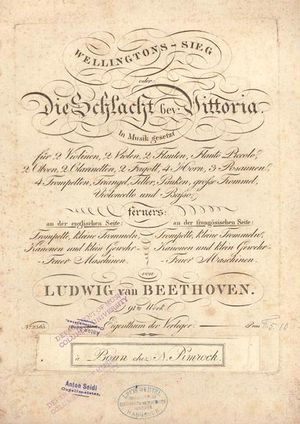 WELLINGTONS-SIEG
oder
Die Schlacht bey Vittoria.
in Musik gesetzt
für 2 Violinen, 2 Violen, 2 Flauten, Flauto Piccolo,
2 Oboen, 2 Clarinetten, 2 Fagott, 4 Horn, 3 Posaunen,
4 Trompetten, Triangel, Teller, Pauken, große Trommel,
Violoncello und Basso;
ferners:
an der englischen Seite: an der französischen Seite:
Trompette, kleine Trommeln, Trompette, kleine Trommeln,
Kanonen und klein Gewehr- Kanonen und klein Gewehr-
Feuer Maschinen. Feuer Maschinen.
von
LUDWIG van BEETHOVEN.
91tes Werk.
Eigenthum der Verleger. Preis
à Bonn chez N. Simrock.
Anton Seidl
Capellmeister.